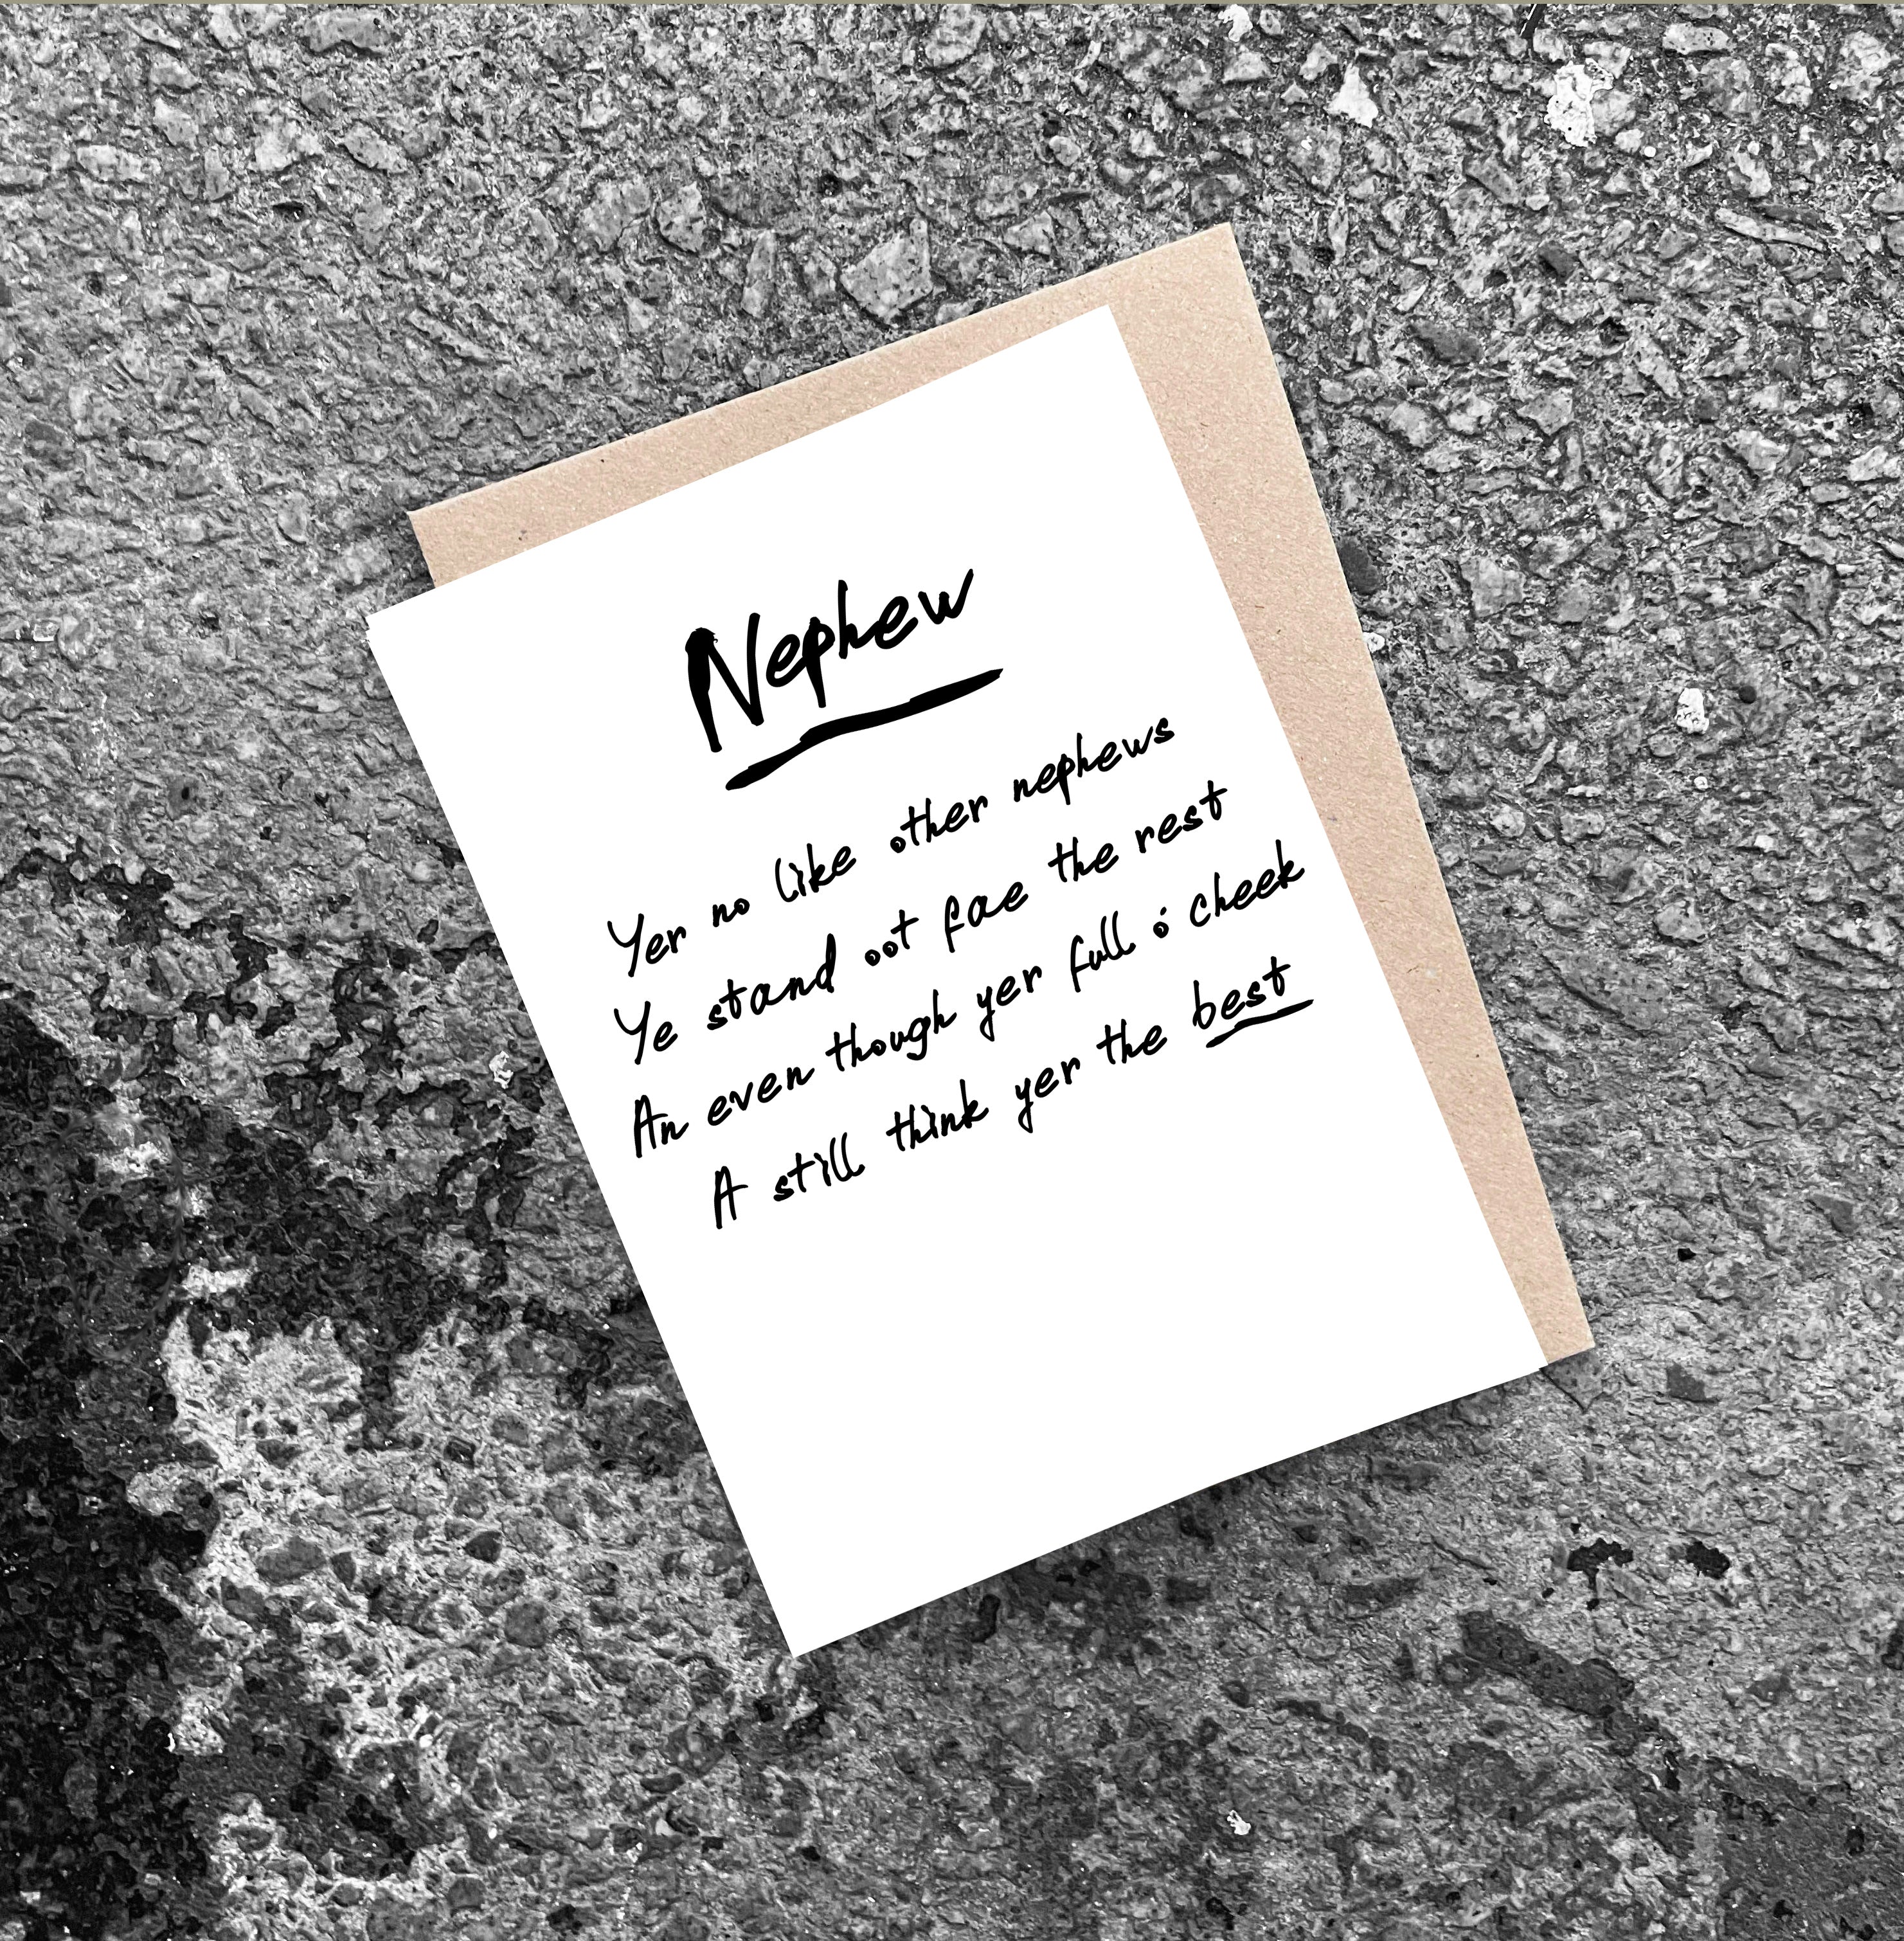 Nephew
Yer no like other nephews
Ye stand oot fae the rest
An even though yer full o' cheek
A still think yer the best